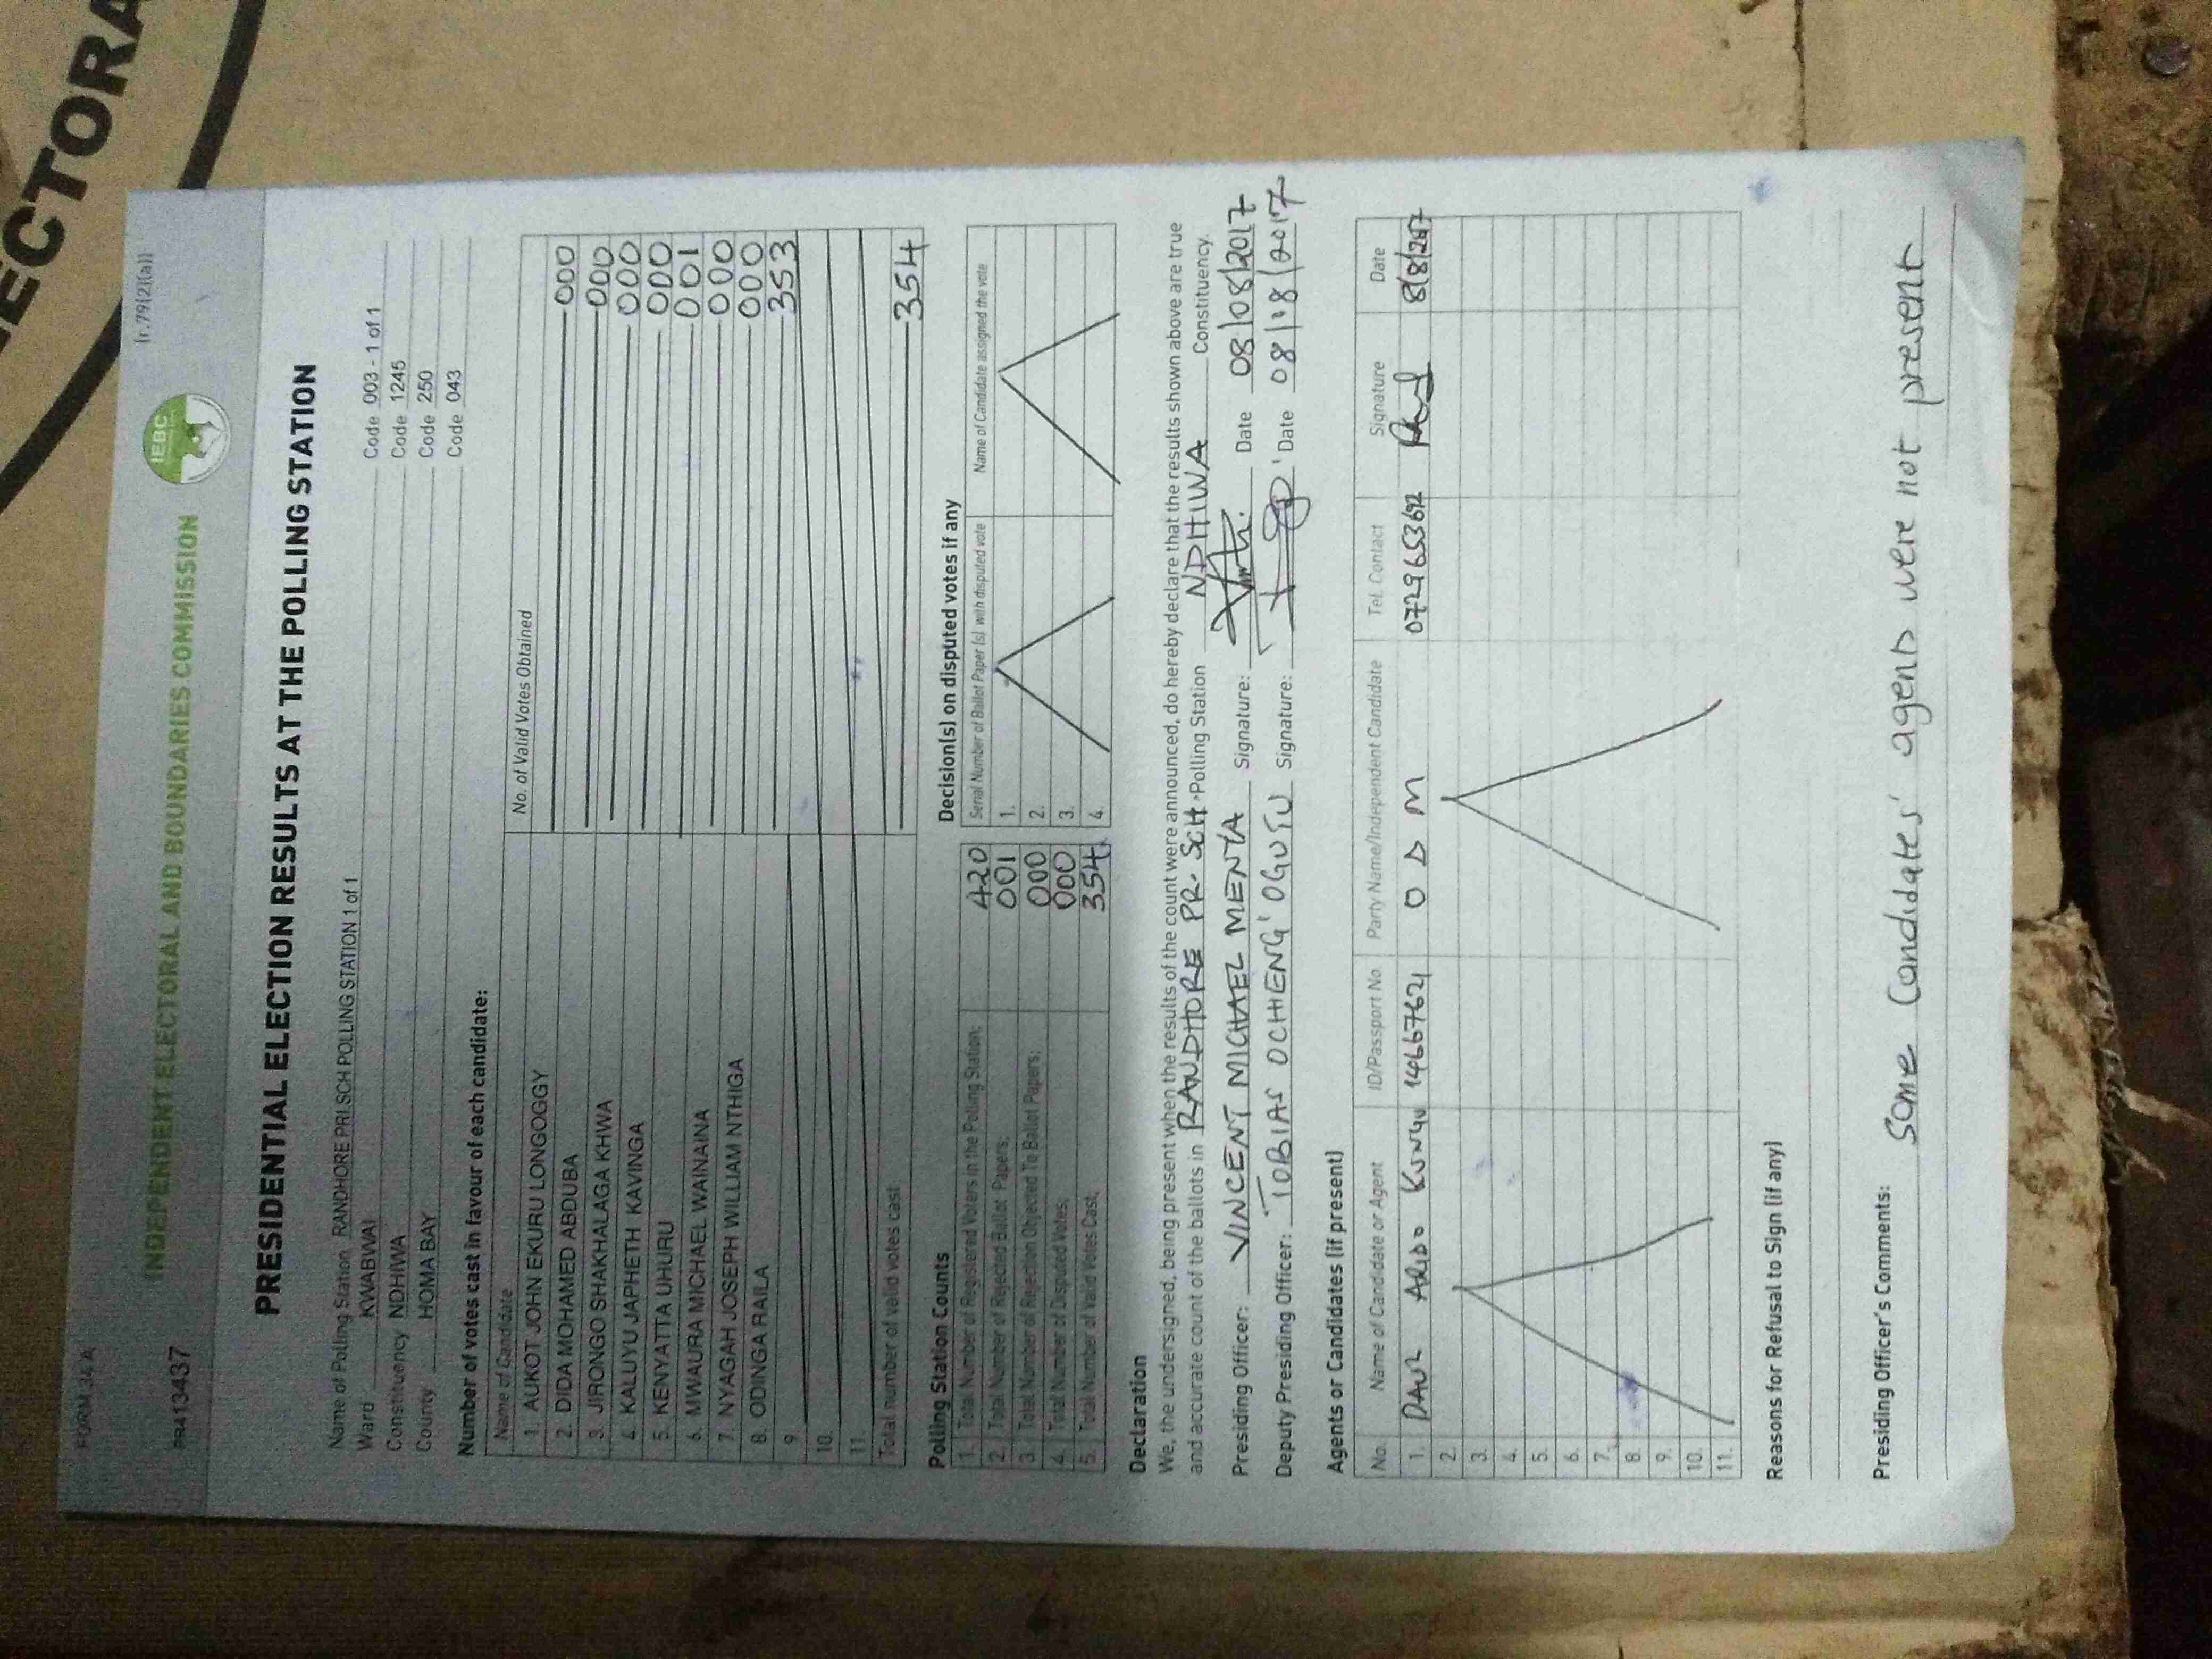 ECTORA
FORM 34 A
(r.79(2)(a))
INDEPENDENT ELECTORAL AND BOUNDARIES COMMISSION
IEBC
PR413437
PRESIDENTIAL ELECTION RESULTS AT THE POLLING STATION
Name of Polling Station RANDHORE PRI.SCH POLLING STATION 1 of 1 Code 003 - 1 of 1
Ward KWABWAI Code 1245
Constituency NDHIWA Code 250
County HOMA BAY Code 043
Number of votes cast in favour of each candidate:
Name of Candidate No. of Valid Votes Obtained
1. AUKOT JOHN EKURU LONGOGGY 000
2. DIDA MOHAMED ABDUBA 000
3. JIRONGO SHAKHALAGA KHWA 000
4. KALUYU JAPHETH KAVINGA 000
5. KENYATTA UHURU 001
6. MWAURA MICHAEL WAINAINA 000
7. NYAGAH JOSEPH WILLIAM NTHIGA 000
8. ODINGA RAILA 353
9.
10.
11.
Total number of valid votes cast 354
Polling Station Counts
1. Total Number of Registered Voters in the Polling Station; 420
2. Total Number of Rejected Ballot Papers; 001
3. Total Number of Rejection Objected To Ballot Papers; 000
4. Total Number of Disputed Votes; 000
5. Total Number of Valid Votes Cast; 354
Decision(s) on disputed votes if any
Serial Number of Ballot Paper (s) with disputed vote Name of Candidate assigned the vote
1.
2.
3.
4.
Declaration
We, the undersigned, being present when the results of the count were announced, do hereby declare that the results shown above are true
and accurate count of the ballots in RANDHORE PR. SCH. Polling Station NDHIWA Constituency.
Presiding Officer: VINCENT MICHAEL MENYA Signature: Date 08/08/2017
Deputy Presiding Officer: TOBIAS OCHIENG' OGUTU Signature: Date 08/08/2017
Agents or Candidates (if present)
No. Name of Candidate or Agent ID/Passport No Party Name/Independent Candidate Tel. Contact Signature Date
1. 14667621 O D M 0729653692 8/8/2017
2.
3.
4.
5.
6.
7.
8.
9.
10.
11.
Reasons for Refusal to Sign (if any)
Presiding Officer's Comments:
Some Candidates' agents were not present